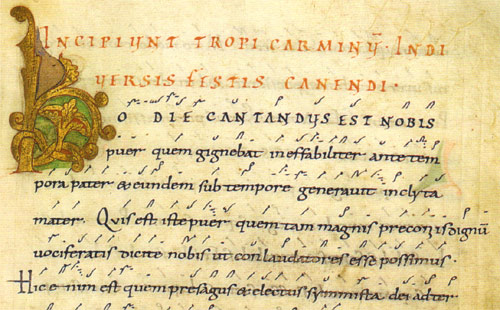 INCIPIUNT TROPI CARMINŪ. INDI
VERSIS FESTIS CANENDI.
HODIE CANTANDUS EST NOBIS
puer quem gignebat ineffabiliter ante tem
pora pater & eundem sub tempore generavit inclyta
mater. Quis est iste puer quem tam magnis preconiis dignū
vociferatis dicite nobis ut conlaudatores esse possimus.
Hic enim est quem presagus & electus symmista dei ad ter